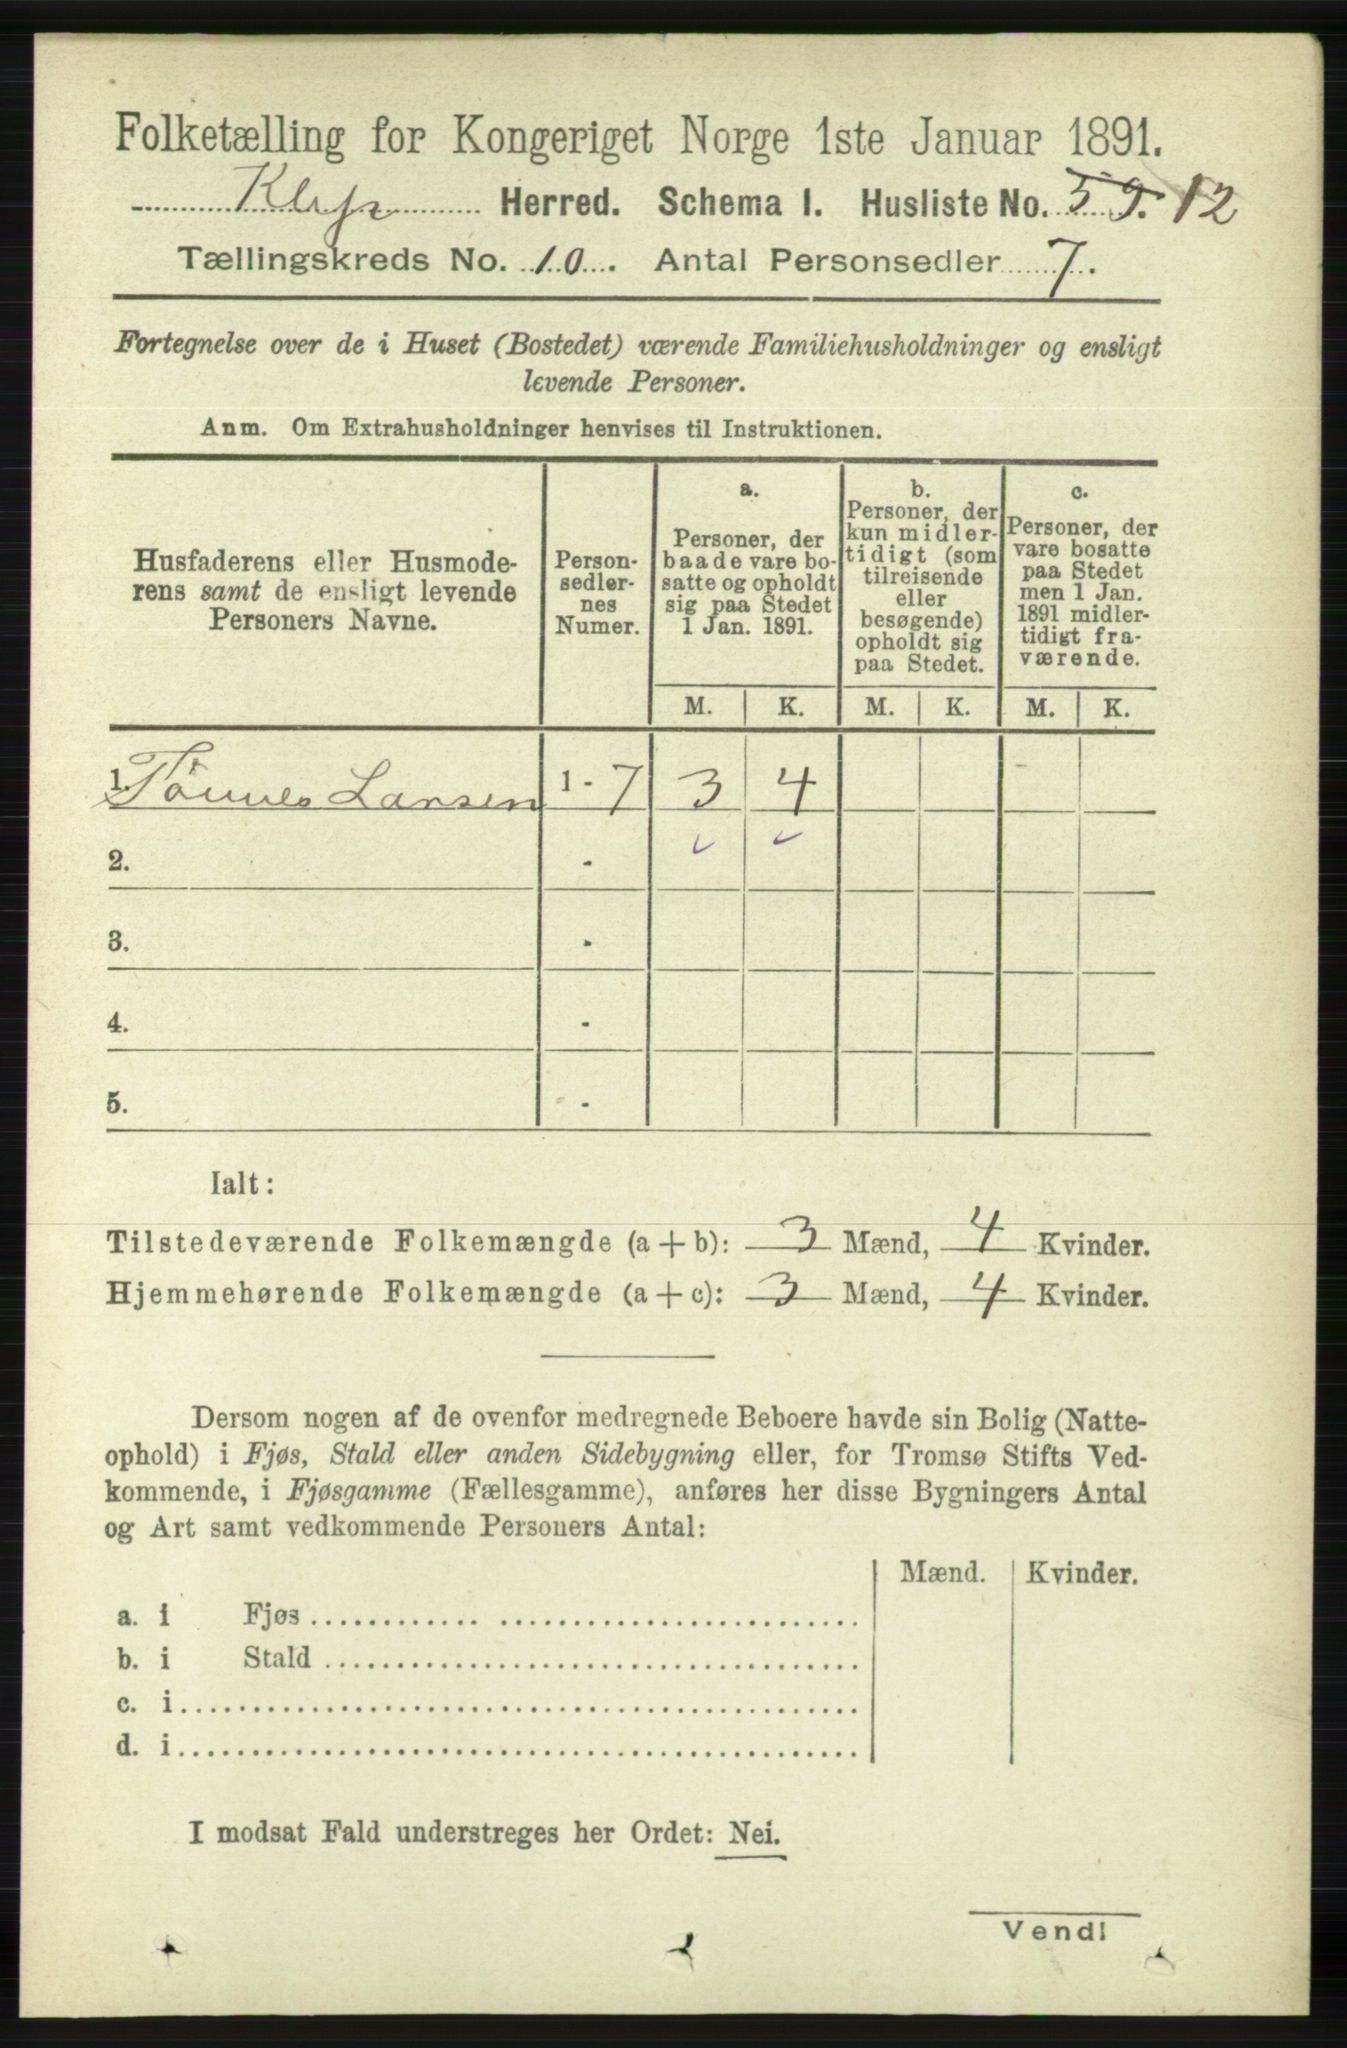 Folketælling for Kongeriget Norge 1ste Januar 1891.
Klep Herred. Schema I. Husliste No. 59. 12
Tællingskreds No. 10. Antal Personsedler 7.
Fortegnelse over de i Huset (Bostedet) værende Familiehusholdninger og ensligt
levende Personer.
Anm. Om Extrahusholdninger henvises til Instruktionen.
Husfaderens eller Husmode-
rens samt de ensligt levende
Personers Navne.
Person-
sedler-
nes
Numer.
a.
Personer, der
baade vare bo-
satte og opholdt
sig paa Stedet
1 Jan. 1891.
b.
Personer, der
kun midler-
tidigt (som
tilreisende
eller
besøgende)
opholdt sig
paa Stedet.
c.
Personer, der
vare bosatte
paa Stedet
men 1 Jan.
1891 midler-
tidigt fra-
værende.
M. K. M. K. M. K.
1. Tönnes Larsen 1 - 7 3 4
2. -
3. -
4. -
5. -
Ialt:
Tilstedeværende Folkemængde (a + b): 3 Mænd, 4 Kvinder.
Hjemmehørende Folkemængde (a + c): 3 Mænd, 4 Kvinder.
Dersom nogen af de ovenfor medregnede Beboere havde sin Bolig (Natte-
ophold) i Fjøs, Stald eller anden Sidebygning eller, for Tromsø Stifts Ved-
kommende, i Fjøsgamme (Fællesgamme), anføres her disse Bygningers Antal
og Art samt vedkommende Personers Antal:
Mænd. Kvinder.
a. i Fjøs
b. i Stald
c. i
d. i
I modsat Fald understreges her Ordet: Nei.
Vend!